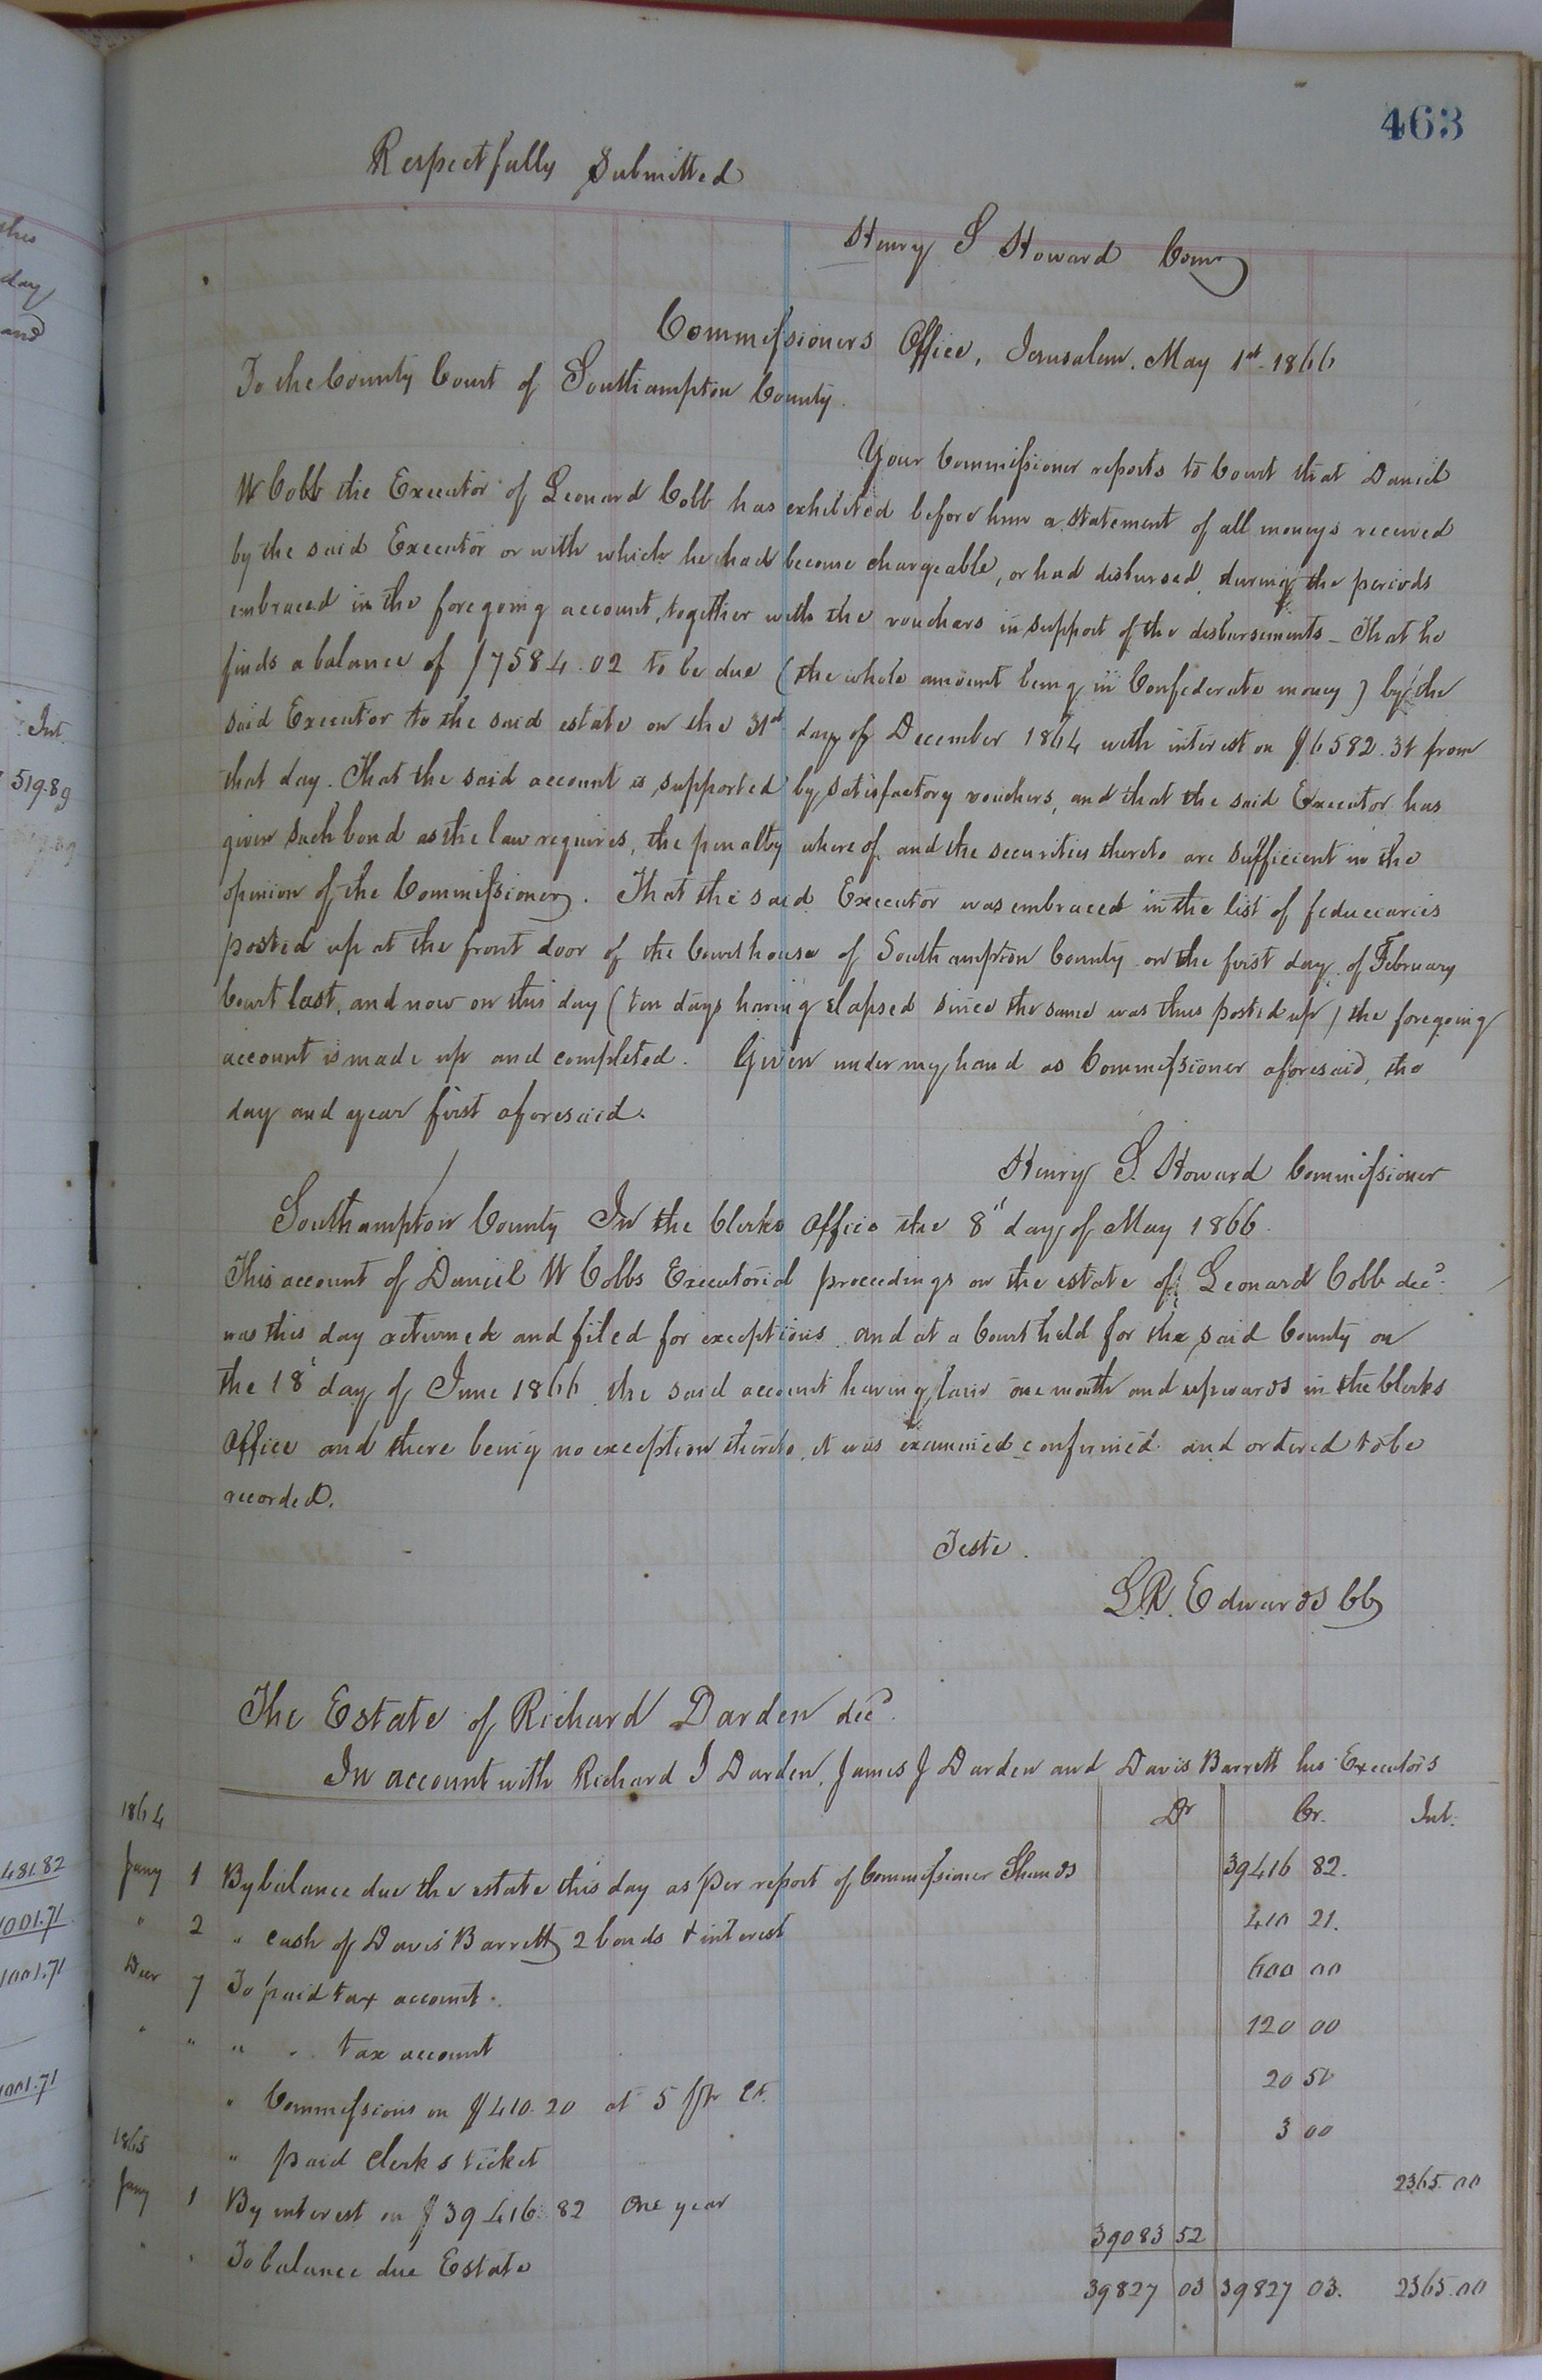 463
Respectfully Submitted
Henry S Howard Comr
Commissioners Office, Jerusalem. May 1st 1866
To the County Court of Southampton County.
Your Commissioner reports to Court that Daniel
W Cobb the Executor of Leonard Cobb has exhibited before him a statement of all moneys received
by the said Executor or with which he had become chargeable, or had disbursed, during the periods
embraced in the foregoing account, together with the vouchers in support of the disbursements - That he
finds a balance of $7584.02 to be due (the whole amount being in Confederate money) by the
said Executor to the said estate on the 31st day of December 1864 with interest on $6582.31 from
that day. That the said account is supported by satisfactory vouchers, and that the said Executor has
given such bond as the law requires, the penalty whereof and the securities thereto are sufficient in the
opinion of the Commissioner. That the said Executor was embraced in the list of feduciaries
posted up at the front door of the Courthouse of Southampton County on the first day of February
Court last, and now on this day (ten days having elapsed since the same was thus posted up) the foregoing
account is made up and completed. Given under my hand as Commissioner aforesaid, the
day and year first aforesaid.
Henry S. Howard Commissioner
Southampton County In the Clerks Office the 8th day of May 1866.
This account of Daniel W Cobbs Executorial proceedings on the estate of Leonard Cobb decd.
was this day returned and filed for exceptions and at a Court held for the said County on
the 18th day of June 1866 the said account having lain one month and upwards in the Clerks
Office and there being no exception thereto, it was examined confirmed and ordered to be
recorded.
Teste.
L.R. Edwards CC
The Estate of Richard Darden decd.
In account with Richard J Darden, James J Darden and Davis Barrett his Executors
1864 Dr Cr. Int.
Jany 1 By balance due the estate this day as per report of Commissioner Shands 39416 82.
" 2 " cash of Davis Barrett 2 bonds & interest 410 21.
Decr 7 To paid tax account. 600 00
" " " " tax account 120 00
" Commissions on $410.20 at 5 pr ct. 20 51
1865 " paid clerks ticket 3 00
Jany 1 By interest on $39416.82 One year 2365.00
" " To balance due Estate 39083 52
39827 03 39827 03. 2365.00
shes
day
and
Int.
519.89
481.82
1001.71
1001.71
1001.71